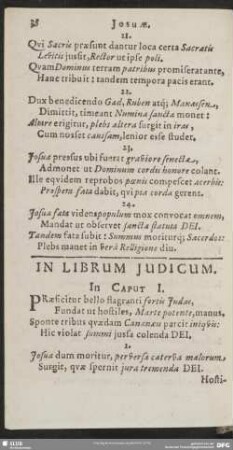 38 Josuæ.
21.
Qvi Sacris præsunt dantur loca certa Sacratis
Levitis jussit, Rector ut ipse poli.
Qvam Dominus terram patribus promiserat ante,
Hanc tribuit: tandem tempora pacis erant.
22.
Dux benedicendo Gad, Ruben atq; Manassen,
Dimittit, timeant Numina sancta monet:
Altare erigitur, plebs altera surgit in iras,
Cum nosset causam, lenior esse studet.
23.
Josua pressus ubi fuerat graviore senecta,
Admonet ut Dominum cordis honore colant.
Ille eqvidem reprobos pœnis compescet acerbis:
Prospera fata dabit, qvi pia corda gerens.
24.
Josua fata videns populum mox convocat omnem,
Mandat ut observet sancta statuta DEI.
Tandem fata subit: Summus moriturq; Sacerdos:
Plebs manet in vera Religione diu.
IN LIBRUM JUDICUM.
In Caput I.
Præficitur bello flagranti fortis Judas,
Fundat ut hostiles, Marte potente, manus.
Sponte tribus qvædam Cananæu parcit iniqvis:
Hic violat summi jussa colenda DEI.
2.
Josua dum moritur, perversa caterva malorum,
Surgit, qvæ spernit jura tremenda DEI.
Hosti-